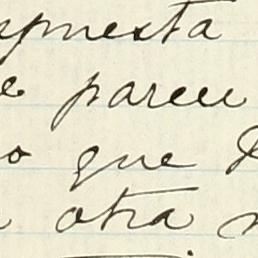 spuesta
e parece
o que
otra